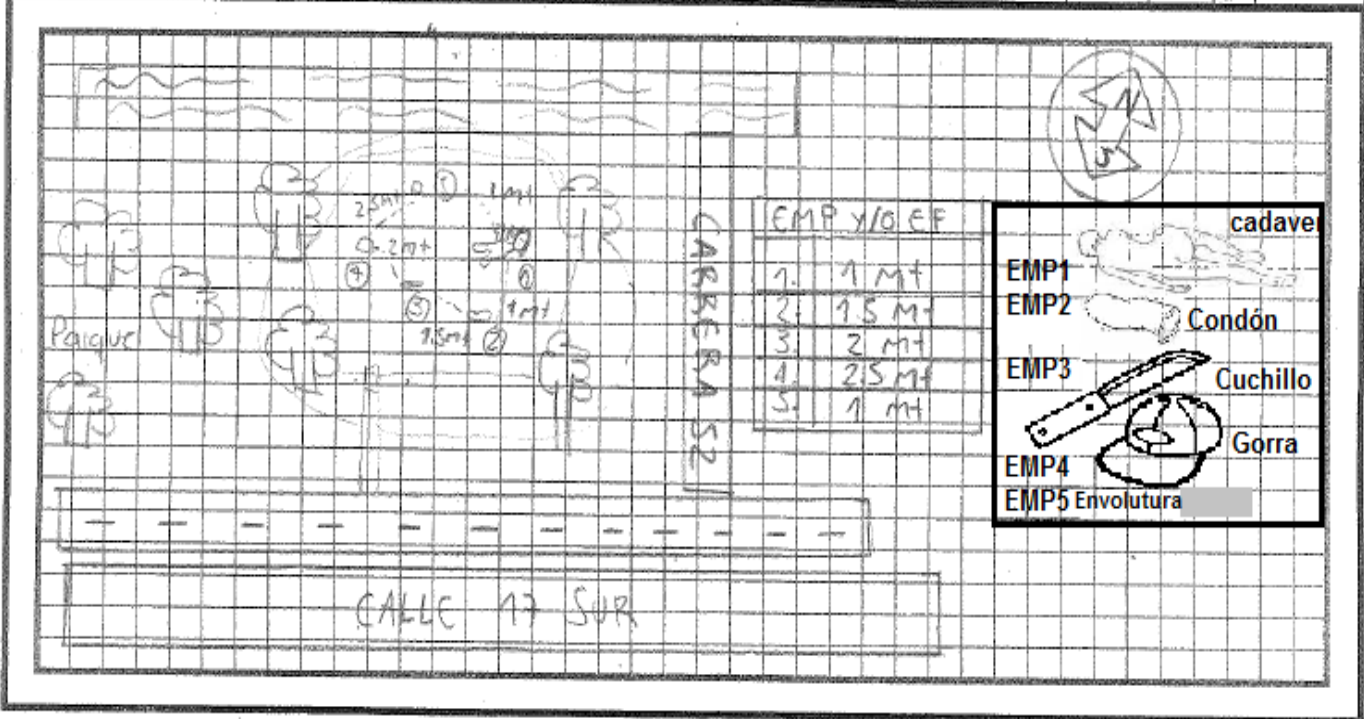 N
S
2.5mt
①
1mt
2mt
④
①
③
1mt
1.5mt
②
Parque
CARRERA 52
EMP Y/O EF
1. 1 Mt
2. 1.5 Mt
3. 2 Mt
4. 2.5 Mt
5. 1 Mt
cadaver
EMP1
EMP2
Condón
EMP3
Cuchillo
Gorra
EMP4
EMP5 Envolutura
CALLE 17 SUR